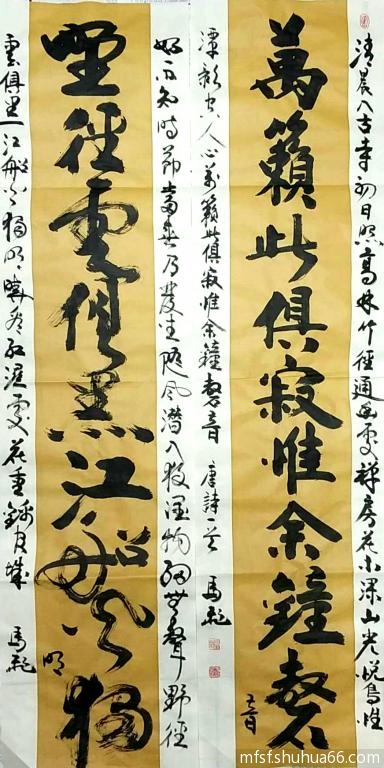 清晨入古寺初日照高林竹径通幽處禅房花木深山光悦鳥性
萬籟此俱寂惟余鐘磬音
潭影空人心萬籟此俱寂惟余鐘磬音 唐詩一首 馬
好雨知時節當春乃發生随風潜入夜潤物細無聲野径
野径雲俱黑江船火獨明
雲俱黑江船火獨明曉看红濕處花重錦官城 馬
mfsfshuhua66.com